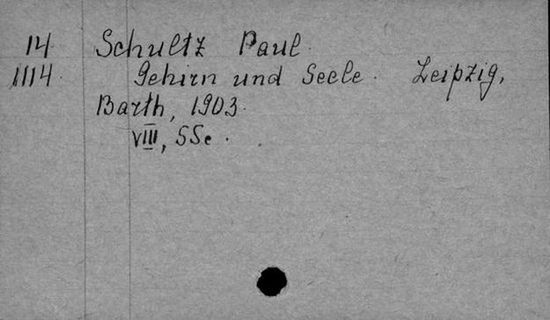 14 Schultz Paul.
1114. Gehirn und Seele. Leipzig,
Barth, 1903.
VIII, 55c.